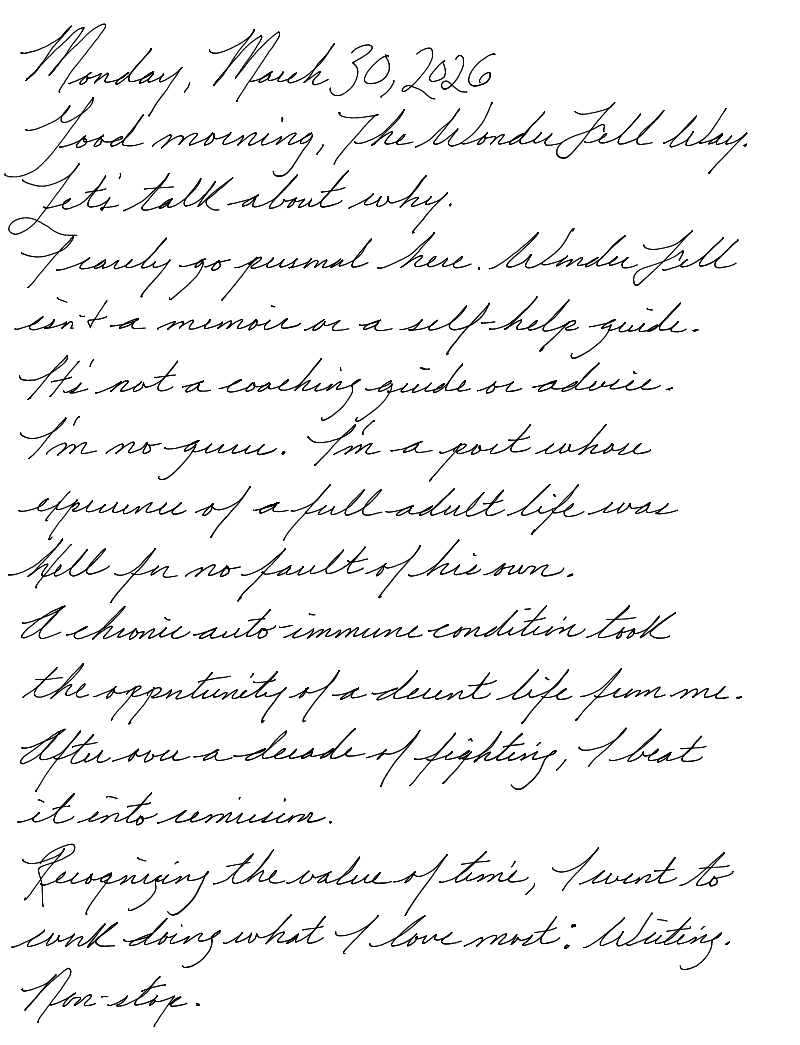 Monday, March 30, 2026
Good morning, The WonderFell Way.
Let's talk about why.
I rarely go personal here. WonderFell
isn't a memoir or a self-help guide.
It's not a coaching guide or advice.
I'm no guru. I'm a poet whose
experience of a full adult life was
Hell for no fault of his own.
A chronic auto-immune condition took
the opportunity of a decent life from me.
After over a decade of fighting, I beat
it into remission.
Recognizing the value of time, I went to
work doing what I love most: Writing.
Non-stop.